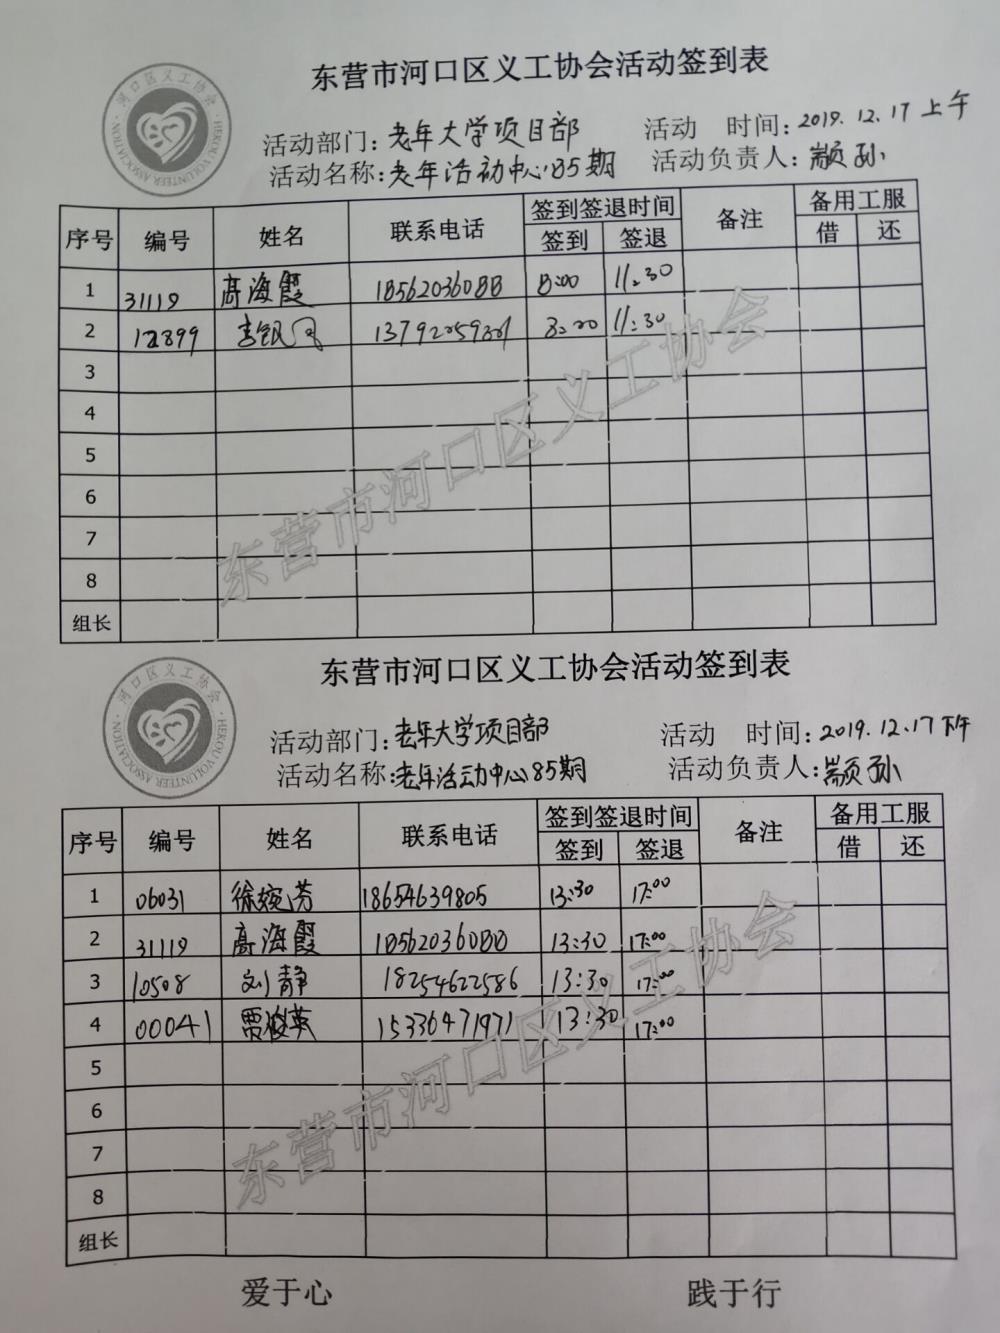 东营市河口区义工协会活动签到表
河口区义工协会
HEKOU VOLUNTEER ASSOCIATION
活动部门：老年大学项目部 活动 时间：2019.12.17上午
活动名称：老年活动中心85期 活动负责人：颛孙
序号 编号 姓名 联系电话 签到签退时间 备注 备用工服
签到 签退 借 还
1 31119 高海霞 18562036088 8:00 11:30
2 12899 李银风 8:00 11:30
3
4
5
6
7
8
组长
东营市河口区义工协会
东营市河口区义工协会活动签到表
河口区义工协会
HEKOU VOLUNTEER ASSOCIATION
活动部门：老年大学项目部 活动 时间：2019.12.17下午
活动名称：老年活动中心85期 活动负责人：颛孙
序号 编号 姓名 联系电话 签到签退时间 备注 备用工服
签到 签退 借 还
1 06031 徐婉芳 18654639805 13:30 17:00
2 31119 高海霞 18562036088 13:30 17:00
3 10508 刘静 18254622586 13:30 17:00
4 00041 贾俊英 15336471971 13:30 17:00
5
6
7
8
组长
东营市河口区义工协会
爱于心 践于行